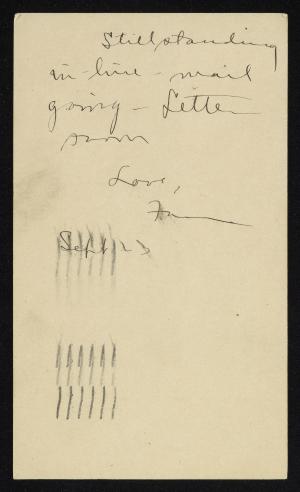 Still standing
in line - mail
going - Letter
soon
Love,
Sept 23